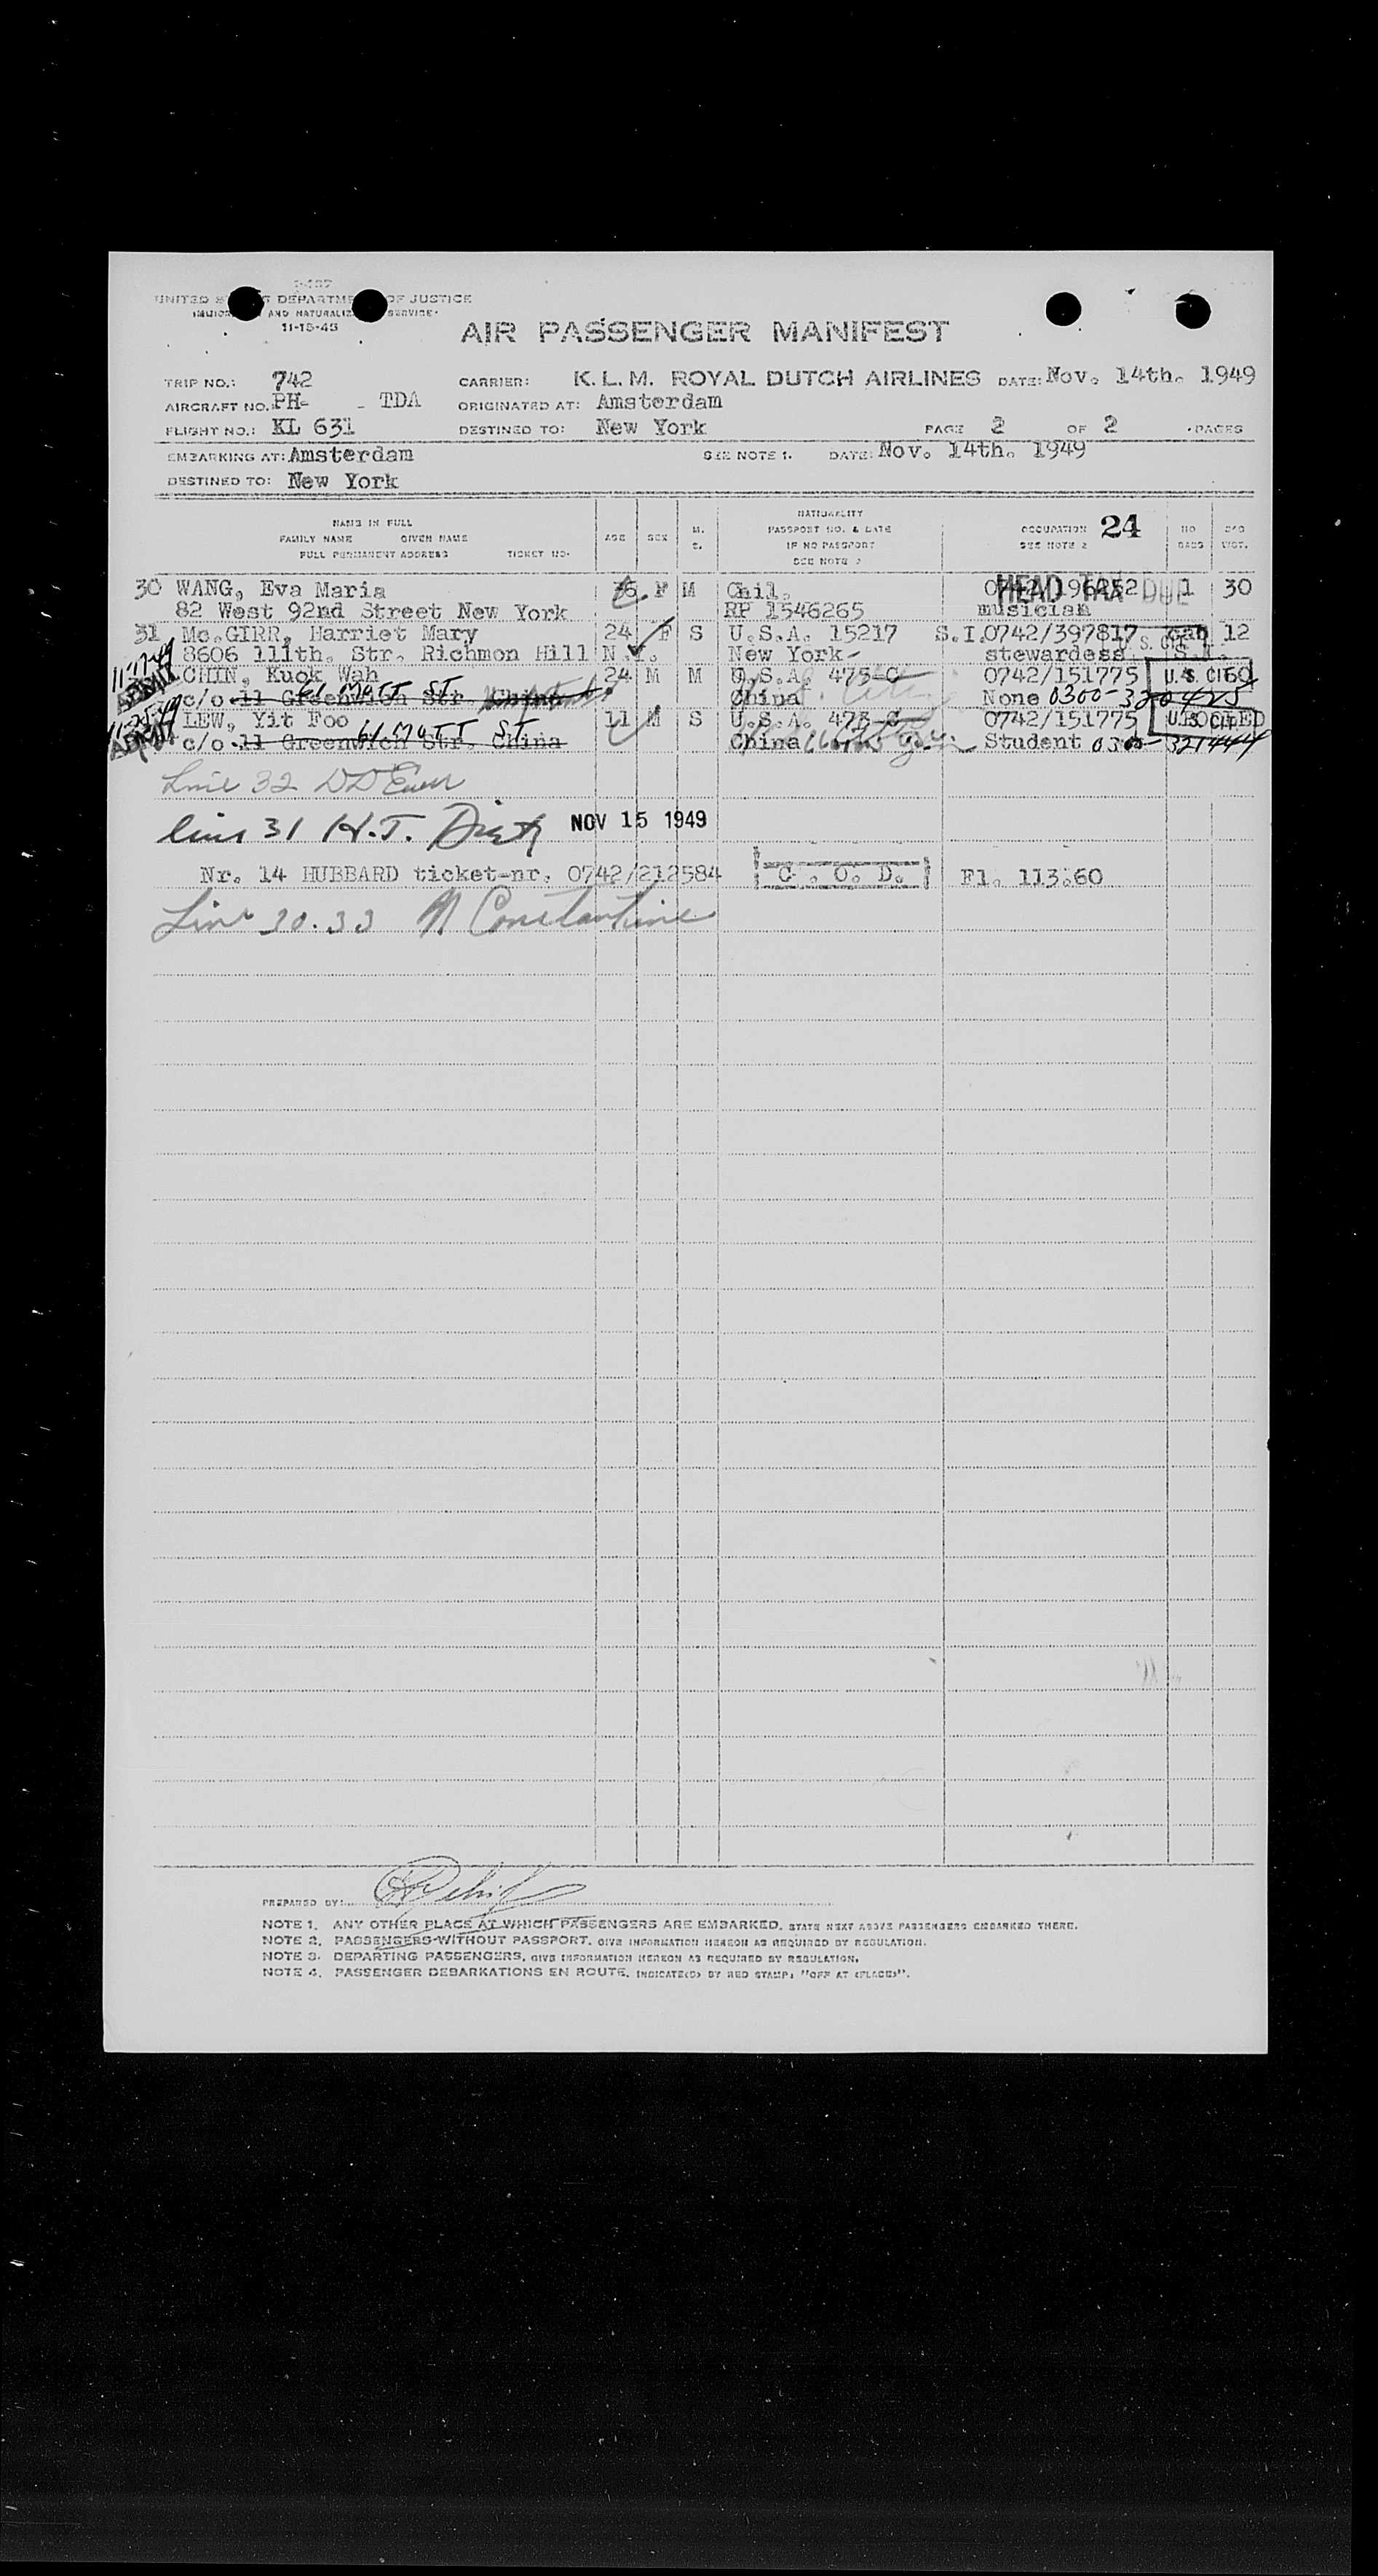 I-487
UNITED DEPARTME OF JUSTICE
AND NATURALIZ SERVICE
11-15-45
AIR PASSENGER MANIFEST
TRIP NO.: 742 CARRIER: K. L. M. ROYAL DUTCH AIRLINES DATE: Nov. 14th. 1949
AIRCRAFT NO. PH- - TDA ORIGINATED AT: Amsterdam
FLIGHT NO.: KL 631 DESTINED TO: New York PAGE 2 OF 2 PAGES
EMBARKING AT: Amsterdam SEE NOTE 1. DATE: Nov. 14th. 1949
DESTINED TO: New York
NAME IN FULL
FAMILY NAME GIVEN NAME
FULL PERMANENT ADDRESS TICKET NO.
AGE SEX M. S.
NATIONALITY
PASSPORT NO. & DATE
IF NO PASSPORT
SEE NOTE 2
OCCUPATION 24
SEE NOTE 2
NO BAGS
BAG WGT.
30 WANG, Eva Maria 36 F M Chil. 0742/196252 1 30
HEAD TAX DUE
82 West 92nd Street New York RP 1546265 musician
31 Mc.GIRR, Harriet Mary 24 F S U.S.A. 15217 S.I. 0742/397817 cab 12
8606 111th. Str. Richmon Hill N.Y. New York - stewardess U. S. CIT. S.I.
11-17-49 ADMIT CHIN, Kuok Wah 24 M M U.S.A. 475-C 0742/151775 U. S. CIT 60
c/o 11 Greenwich Str. China 61 MOTT ST China None 0300-320425
11-25-49 ADMIT LEW, Yit Foo 11 M S U.S.A. 473-C 0742/151775 U.S. CIT.
c/o 11 Greenwich Str. China 61 MOTT ST China Student 0300-321444
Line 32
line 31 H.J. NOV 15 1949
Nr. 14 HUBBARD ticket-nr. 0742/212584 C. O. D. Fl. 113.60
Line 30.33 N Constantine
PREPARED BY:
NOTE 1. ANY OTHER PLACE AT WHICH PASSENGERS ARE EMBARKED, STATE NEXT ABOVE PASSENGERS EMBARKED THERE.
NOTE 2. PASSENGERS WITHOUT PASSPORT, GIVE INFORMATION HEREON AS REQUIRED BY REGULATION.
NOTE 3. DEPARTING PASSENGERS, GIVE INFORMATION HEREON AS REQUIRED BY REGULATION.
NOTE 4. PASSENGER DEBARKATIONS EN ROUTE, INDICATE(D) BY RED STAMP: "OFF AT (PLACE)".